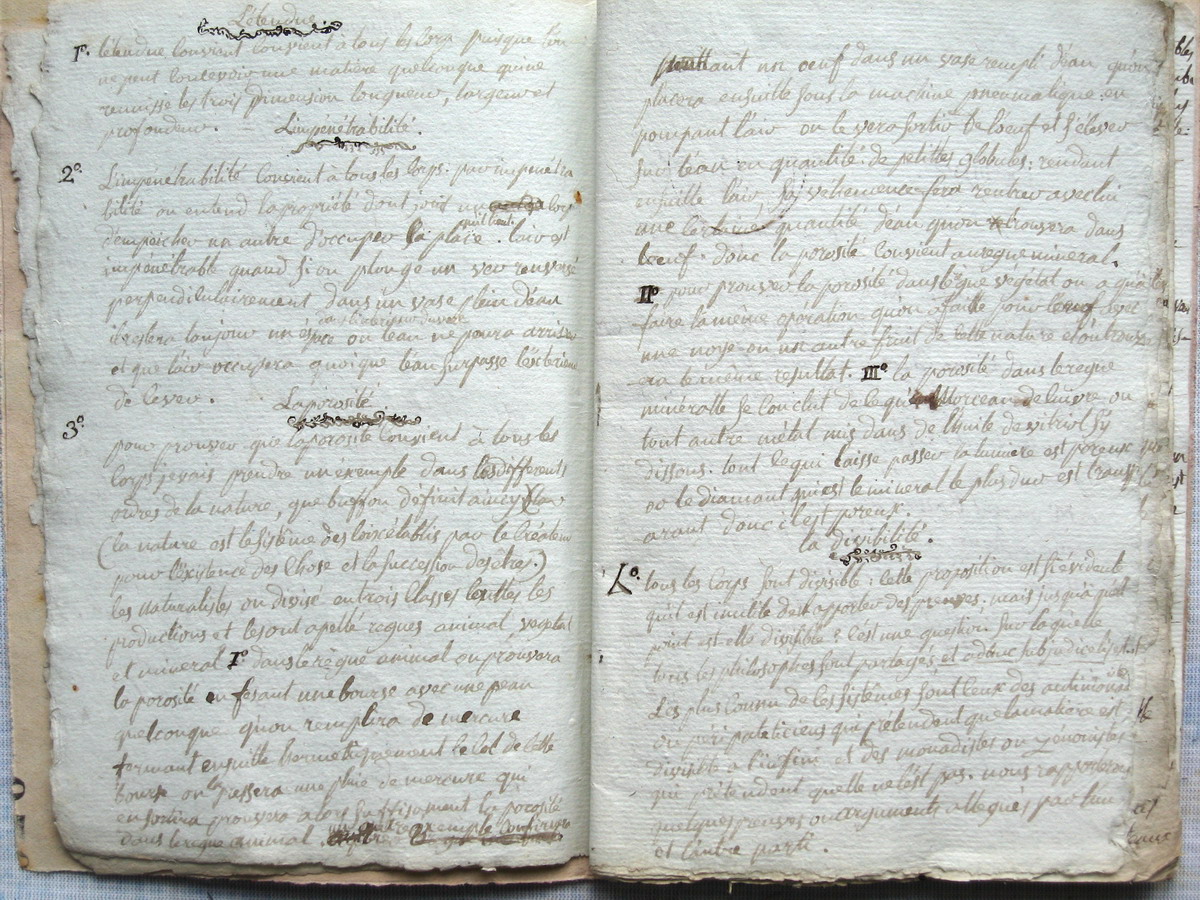 L'étendue
1º. létendue convient convient à tous les corp puisque lon
ne peut concevoir une matière quelconque quine
reunisse les trois dimension longueur, largeur et
profondeur.
L'impénétrabilité.
2º. L'impénétrabilité convient à tous les corps: par impénétra
bilité on entend la propriété dont joüit un corp
d'empeicher un autre d'occuper la place qu'il tient. lair est
impénétrable quand si on plonge un ver renversé
perpendiculairement dans un vase plein d'éau
il restera toujour un espace où leau ne poura arriver
et que lair occupera quoique léau surpasse lextérieur
de le ver.
La porosité
3º. pour prouver que la porosité convient à tous les
corps je vais prendre un exemple dans les différents
ordres de la nature, que buffon définit aincy
(la nature est le sistème des loix établis par le Créateur
pour l'éxistence des chose et la succession des étres.)
les naturalistes on divisé en trois classes touttes les
productions et les ont apellé regnes animal, vegetal
et mineral Iº dans le règne animal on prouvera
la porosité en fesant une bourse avec une peau
quelconque qu'on remplira de mercure
fermant ensuitte hermetiquement le col de cette
bourse on passera une pluie de mercure qui
en sortira prouvera alors suffisament la porosité
dans le règne animal.
mettant un oeuf dans un vase rempli d'eau quon
placera ensuitte sous la machine pneumatique: en
pompant l'air on le vera sortir de l'oeuf et s'élever
sur l'éau en quantité de petittes globules: rendant
ensuitte lair, sa véhemence fera rentrer avec lui
une certaine quantité d'eau quon trouvera dans
loeuf. donc la porosité convient au regne mineral.
IIº pour prouver la porosité dans le règne végétal on a qu'à
faire la même opération qu'on à faitte pour l'oeuf avec
une noye ou un autre fruit de cette nature et on trouv
era le même resultat. IIIº la porosité dans le regne
minéralle se conclut de ce qu'un morceau de cuivre ou
tout autre métal mis dans de l'huile de vitriol s'y
dissous. tout ce qui laisse passer la lumiere est poreux
or le diamant qui est le mineral le plus dur est transp
arant donc il est poreux.
la divibilité.
4º. tous les corps sont divisible: cette proposition est si évident
qu'il est inutile d'en apporter des preuves. mais jusqu'à quel
point est elle divisible? c'est une question sur laquelle
tous les philosophes sont partagés, et adhuc sub judice lis est.
Les plus connu de ces sistêmes sont ceux des
ou péripateticiens qui prétendent que la matiere est
divisible à l'infini et des monadistes ou zenonistes
qui prétendent quelle ne l'est pas. nous rapporterons
quelques preuves ou arguments allegués par l'un
et l'autre parti.